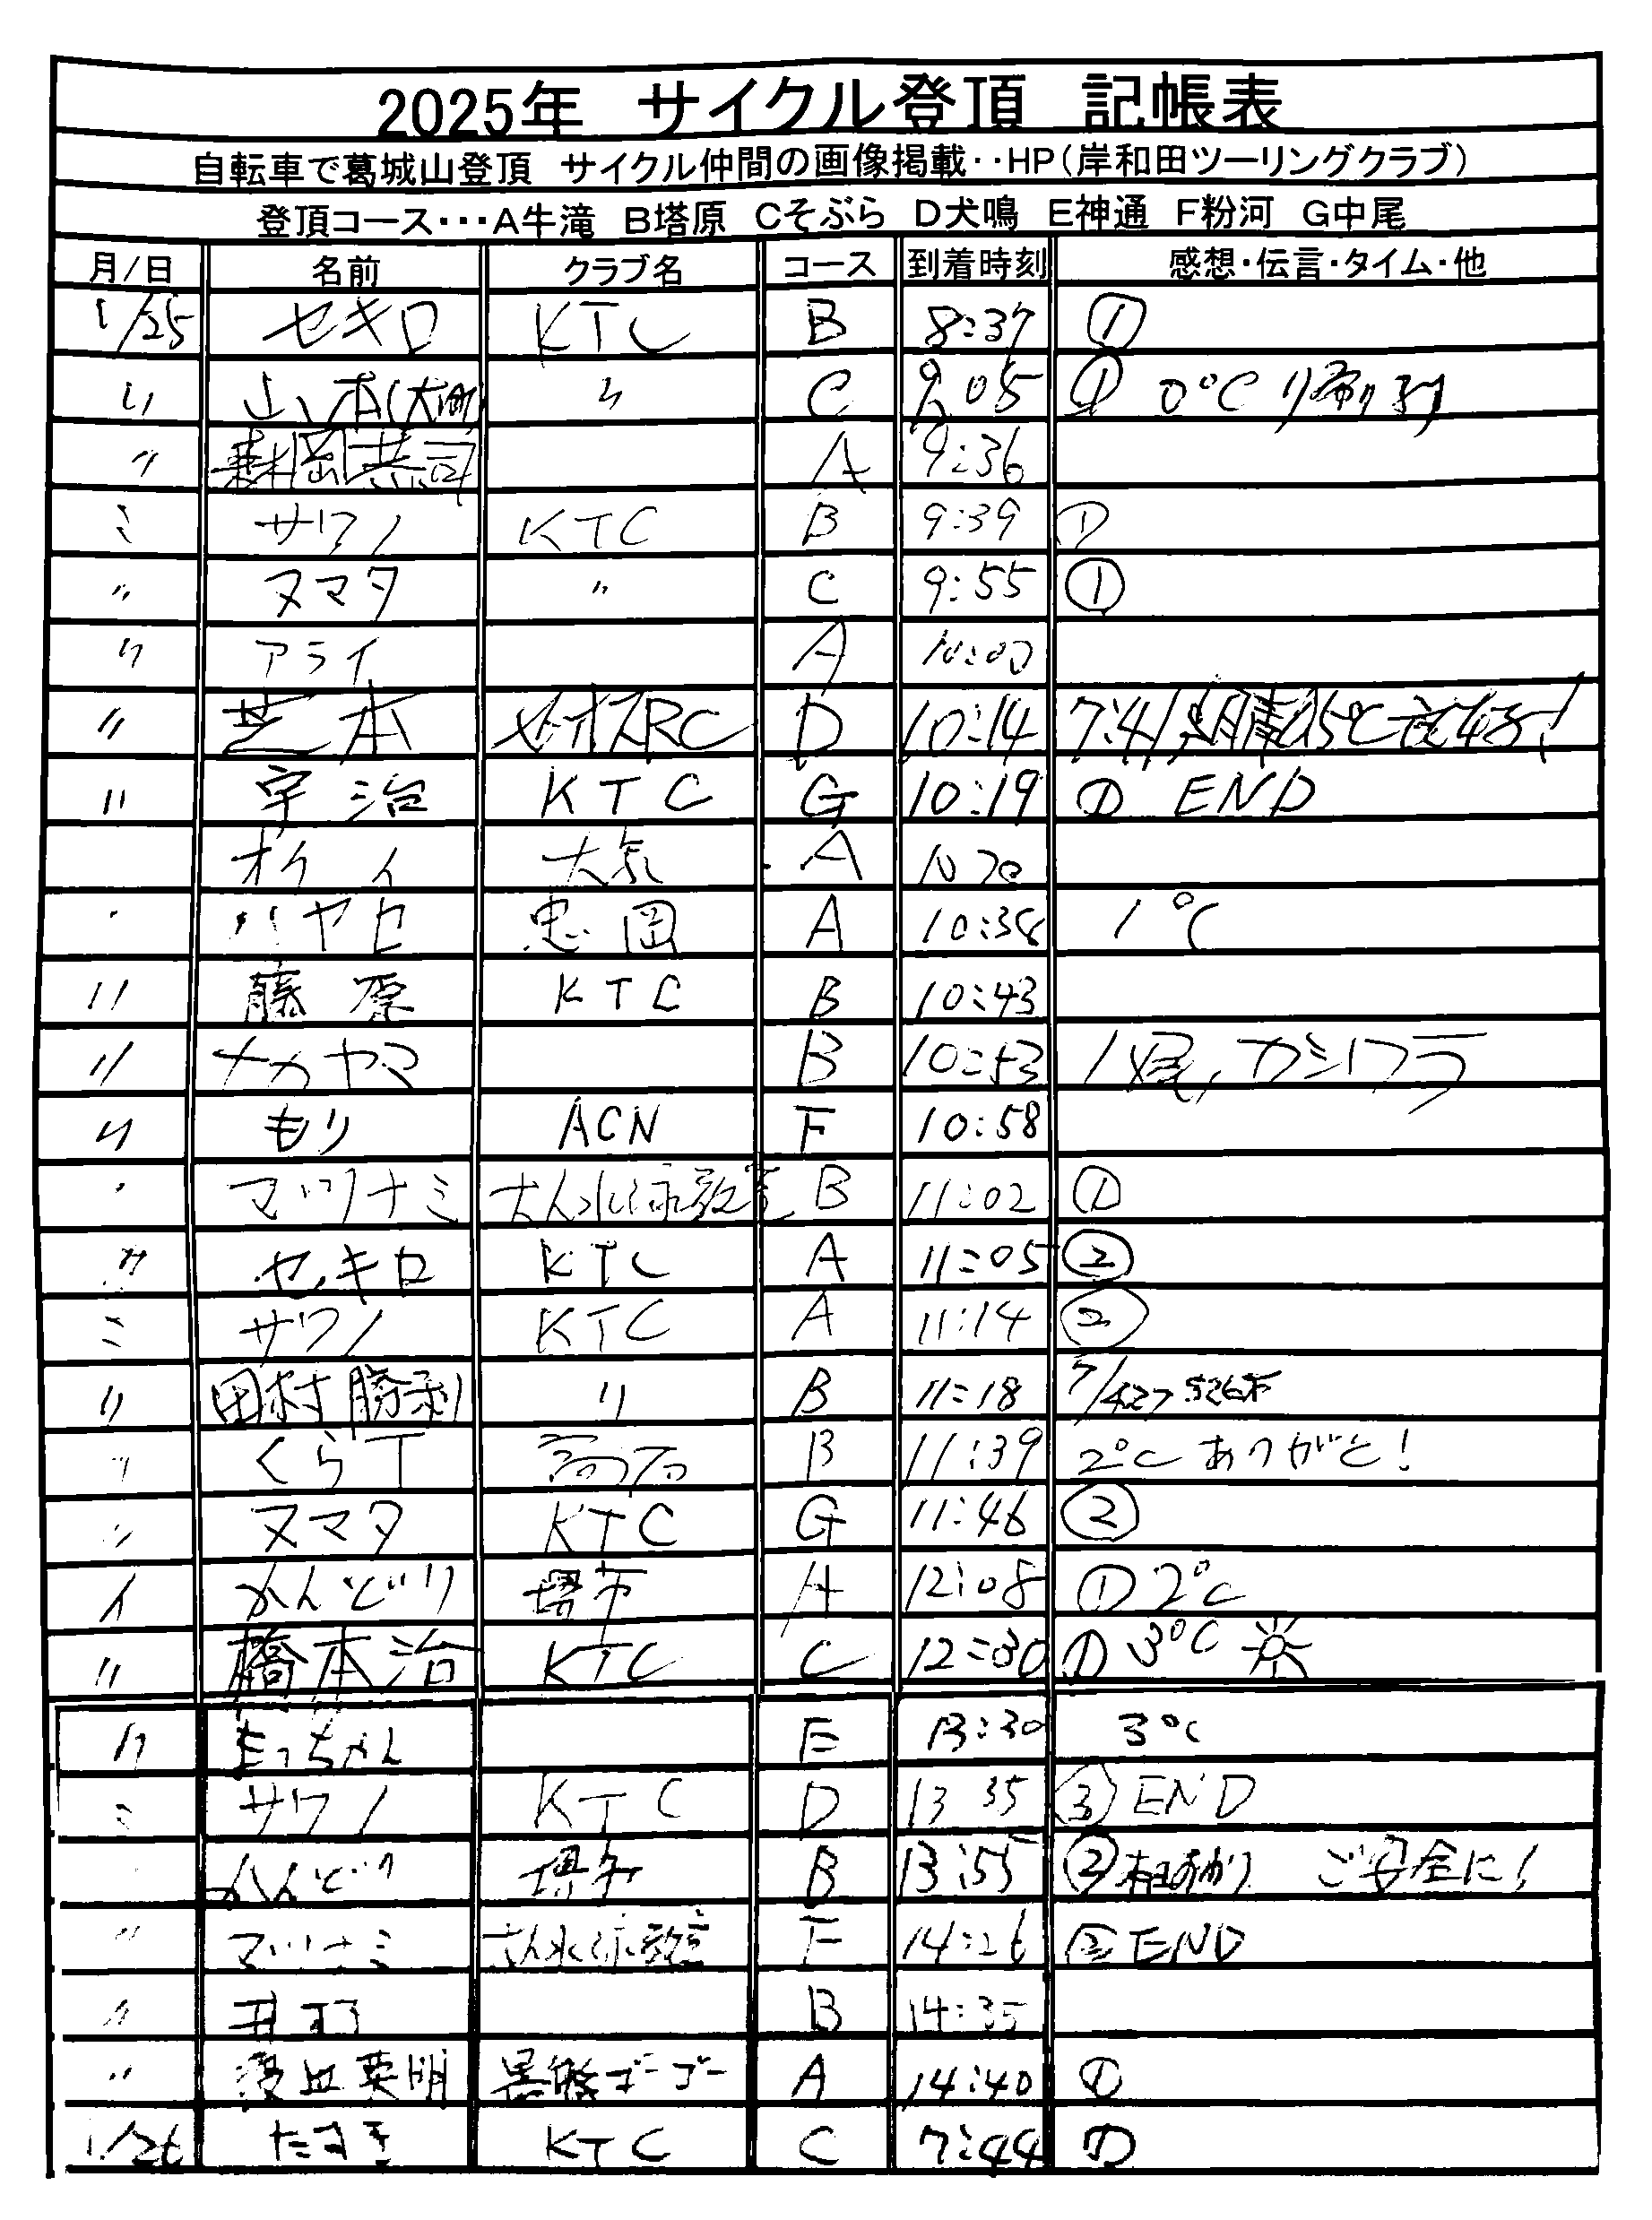 2025年 サイクル登頂 記帳表
自転車で葛城山登頂 サイクル仲間の画像掲載‥HP(岸和田ツーリングクラブ)
登頂コース・・・A牛滝 B塔原 Cそぶら D犬鳴 E神通 F粉河 G中尾
月/日 名前 クラブ名 コース 到着時刻 感想・伝言・タイム・他
1/25 セキロ KTC B 8:37 ①
〃 山本(大町) 〃 C 9:05 ① 0℃
〃 共司 A 9:36
〃 サワノ KTC B 9:39 ①
〃 ヌマタ 〃 C 9:55 ①
〃 アライ A 10:00
〃 芝本 RC D 10:14 7:41
〃 宇治 KTC G 10:19 ① END
オクイ 大気 A
〃 ハヤセ 忠岡 A 10:38 1℃
〃 藤原 KTC B 10:43
〃 ナカヤマ B 10:53
〃 もり ACN F 10:58
〃 マツナミ さん水泳教室 B 11:02 ①
〃 セキロ KTC A 11:05 ②
〃 サワノ KTC A 11:14 ②
〃 田村勝利 〃 B 11:18
〃 くらT 高石 B 11:39 2℃ ありがと!
〃 ヌマタ KTC G 11:46 ②
〃 かんどり 堺市 A 12:08 ① 2℃
〃 橋本治 KTC C 12:30 ① 3℃
〃 まっちゃん E 13:30 3℃
〃 サワノ KTC D 13 35 ③ END
〃 かんどり 堺市 B 13:55 ② ご安全に!
〃 マツナミ さん水泳教室 F 14:26 ② END
〃 B 14:35
〃 英明 黒熊ゴーゴー A 14:40 ①
1/26 たまき KTC C 7:44 ①